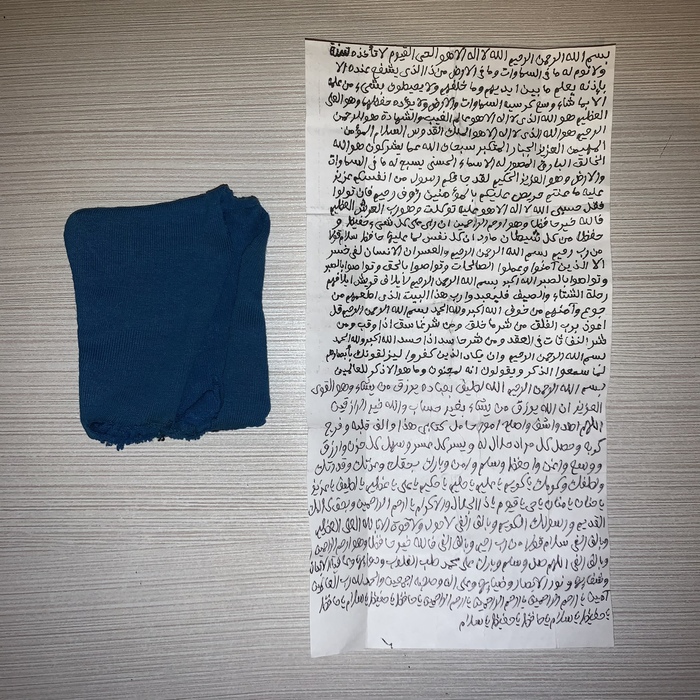 بسم الله الرحمن الرحيم الله لا اله الا هو الحي القيوم لا تأخذه سنة
ولا نوم له ما في السماوات وما في الارض من ذا الذي يشفع عنده الا
بإذنه يعلم ما بين ايديهم وما خلفهم ولا يحيطون بشيء من علمه
الا بما شاء وسع كرسيه السماوات والارض ولا يؤده حفظهما وهو العلي
العظيم هو الله الذي لا اله الا هو عالم الغيب والشهادة هو الرحمن
الرحيم هو الله الذي لا اله الا هو الملك القدوس السلام المؤمن
المهيمن العزيز الجبار المتكبر سبحان الله عما يشركون هو الله
الخالق البارئ المصور له الاسماء الحسنى يسبح له ما في السماوات
والارض وهو العزيز الحكيم لقد جاءكم رسول من انفسكم عزيز
عليه ما عنتم حريص عليكم بالمؤمنين رؤوف رحيم فان تولوا
فقل حسبي الله لا اله الا هو عليه توكلت وهو رب العرش العظيم
فالله خير حافظا وهو ارحم الراحمين ان ربي على كل شيء حفيظ و
حفظا من كل شيطان مارد ان كل نفس لما عليها حافظ سلام قولا
من رب رحيم بسم الله الرحمن الرحيم والعصر ان الانسان لفي خسر
الا الذين آمنوا وعملوا الصالحات وتواصوا بالحق وتواصوا بالصبر
وتواصوا بالصبر الله اكبر بسم الله الرحمن الرحيم لايلاف قريش ايلافهم
رحلة الشتاء والصيف فليعبدوا رب هذا البيت الذي اطعمهم من
جوع وآمنهم من خوف الله اكبر ولله الحمد بسم الله الرحمن الرحيم قل
اعوذ برب الفلق من شر ما خلق ومن شر غاسق اذا وقب ومن
شر النفاثات في العقد ومن شر حاسد اذا حسد الله اكبر ولله الحمد
بسم الله الرحمن الرحيم وان يكاد الذين كفروا ليزلقونك بأبصارهم
لما سمعوا الذكر ويقولون انه لمجنون وما هو الا ذكر للعالمين
بسم الله الرحمن الرحيم الله لطيف بعباده يرزق من يشاء وهو القوي
العزيز ان الله يرزق من يشاء بغير حساب والله خير الرازقين
اللهم اهد واشف واصلح امور حامل كتابي هذا والف قلبه وفرج
كربه وحصل كل مراد حلال له ويسر كل عسر وسهل كل حزن وارزق
ووسع واعن واحفظ وسلم وامن وبارك بحقك وعزتك وقدرتك
ولطفك وكرمك يا كريم يا عليم يا حليم يا حكيم يا علي يا عظيم يا لطيف يا عزيز
يا حنان يا منان يا حي يا قيوم يا ذا الجلال والاكرام يا ارحم الراحمين وبحق كتابك
القديم ورسولك الكريم وبالف الفي لا حول ولا قوة الا بالله العلي العظيم
وبالف الفي سلام قولا من رب رحيم وبالف الفي فالله خير حافظا وهو ارحم الراحمين
وبالف الفي اللهم صل وسلم وبارك على محمد طب القلوب ودوائها وعافية الابدان
وشفائها ونور الابصار وضيائها وعلى اله وصحابه اجمعين والحمد لله رب العالمين
آمين يا ارحم الراحمين يا ارحم الراحمين يا ارحم الراحمين يا حافظ يا حفيظ يا سلام يا حافظ
يا حفيظ يا سلام يا حافظ يا حفيظ يا سلام